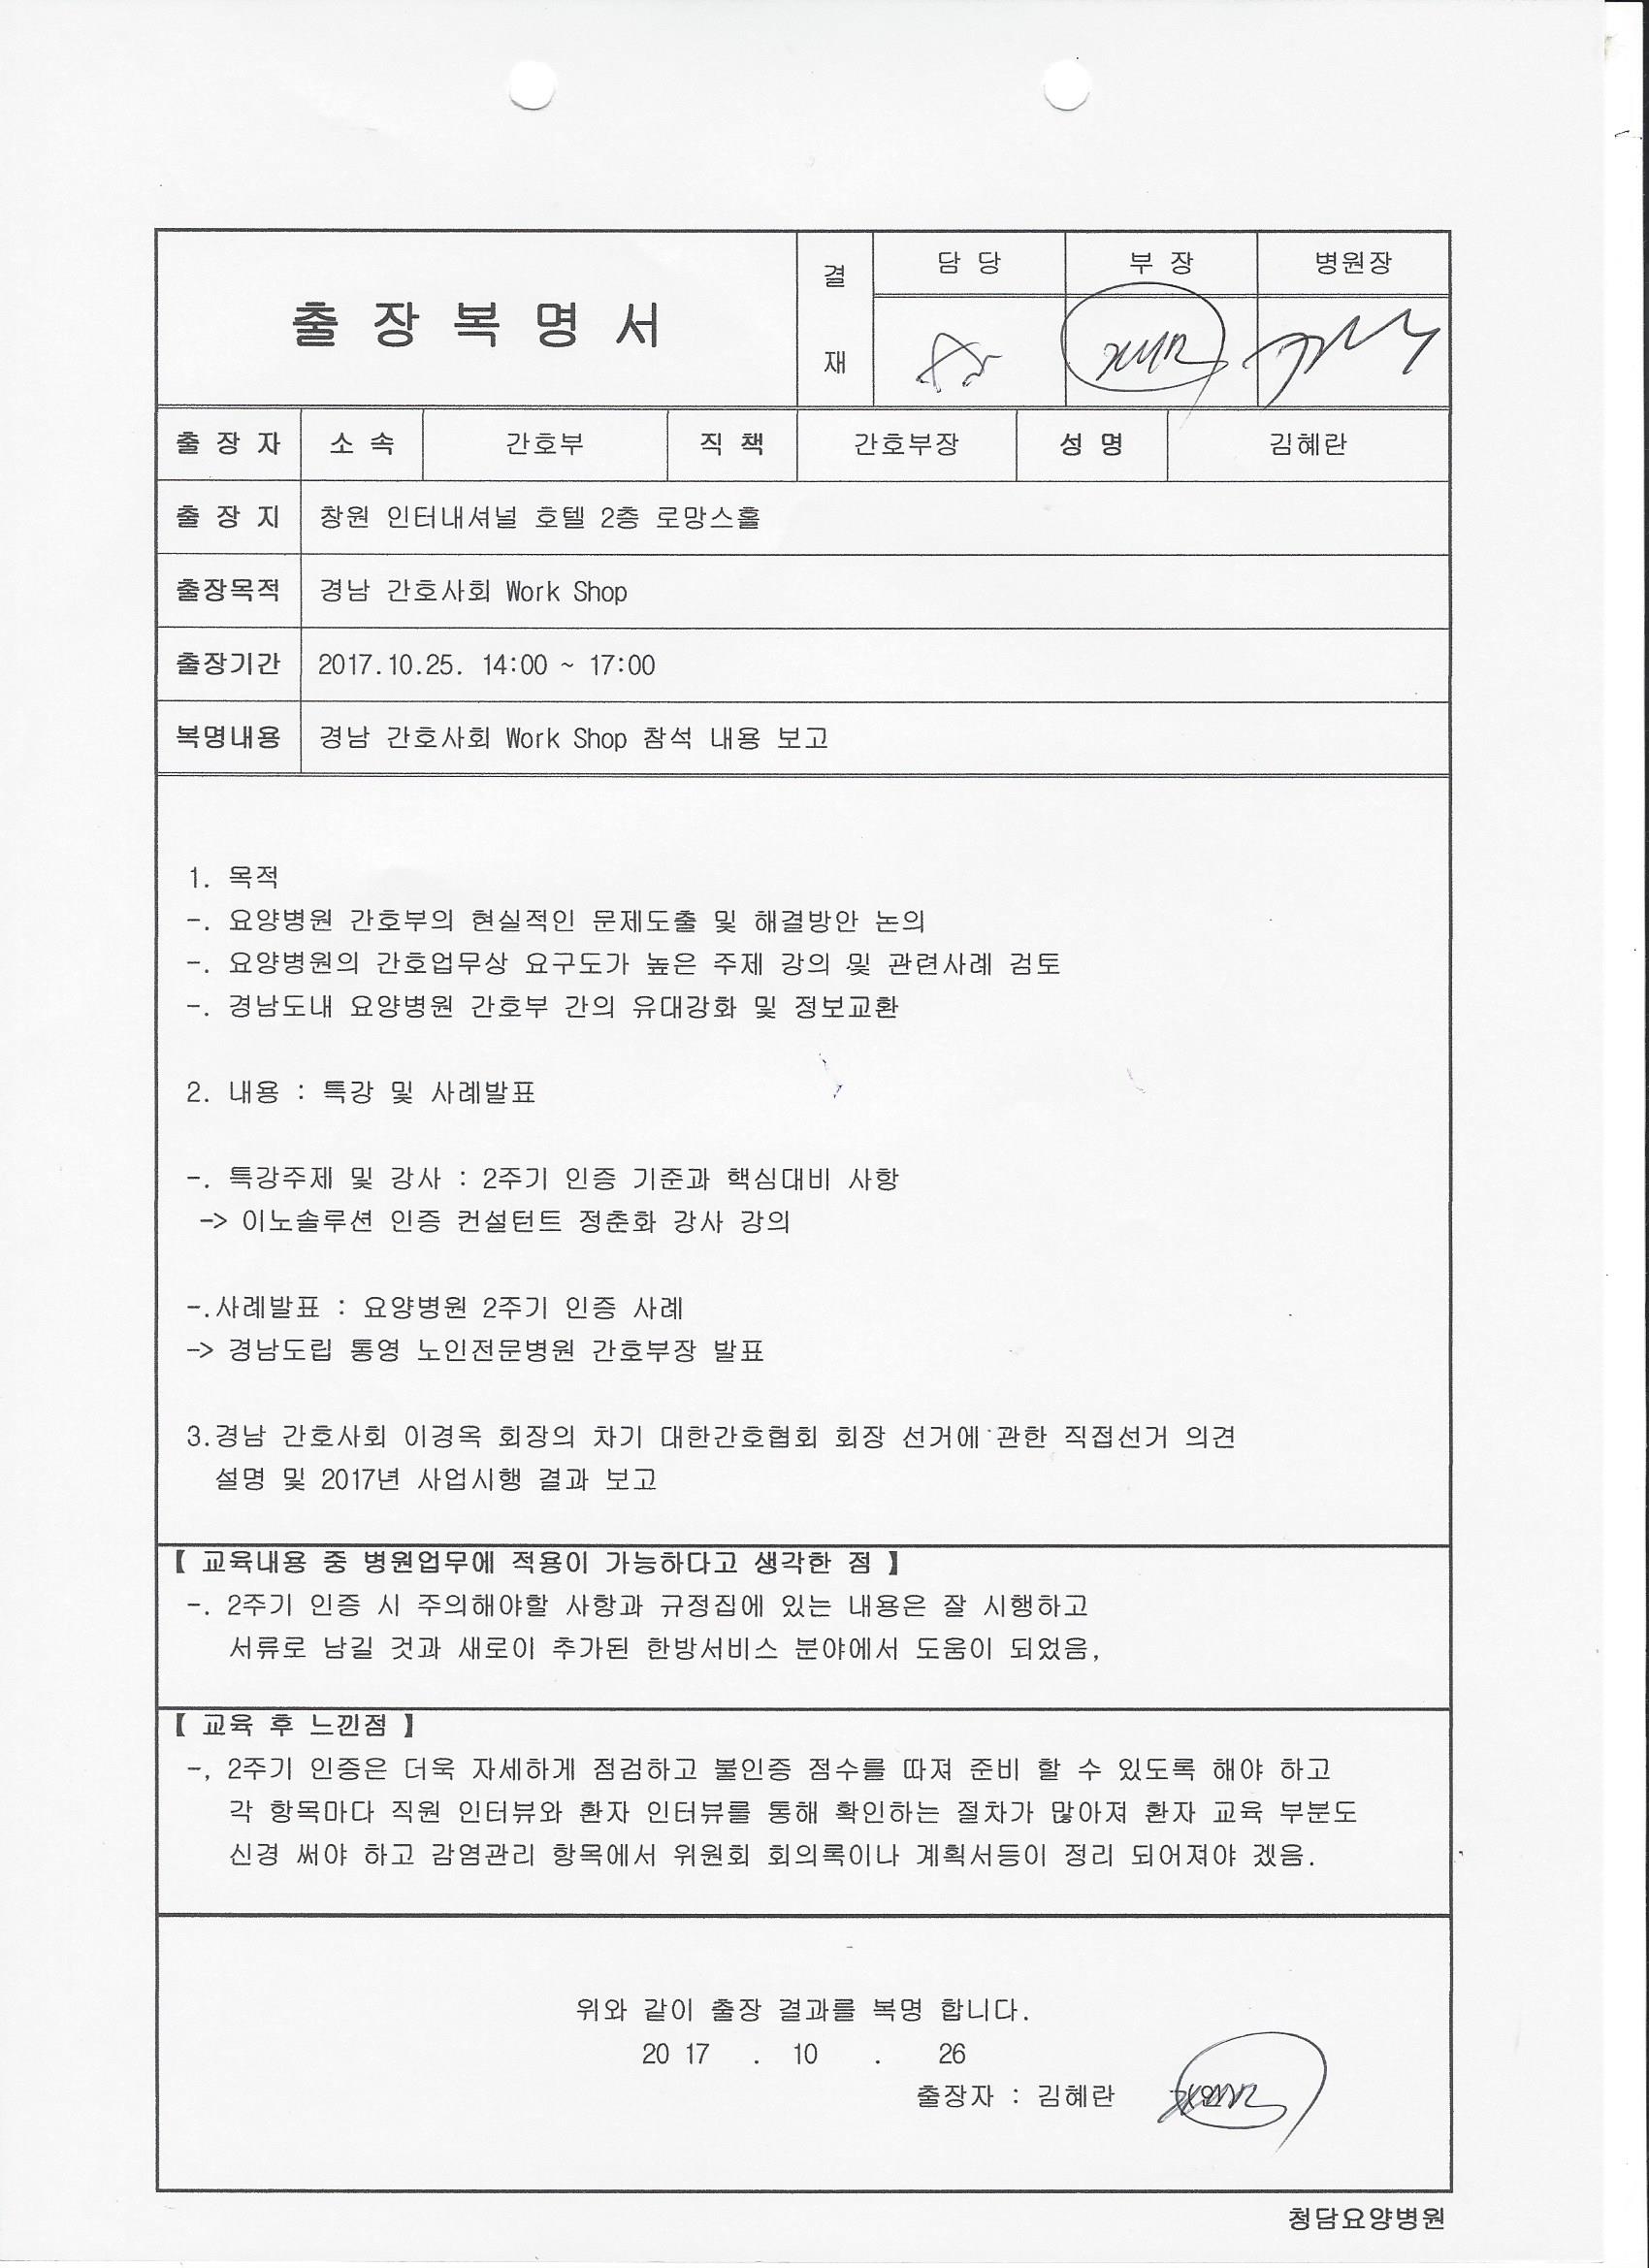 출 장 복 명 서
결 재
담 당
부 장
병원장
출 장 자 소 속 간호부 직 책 간호부장 성 명 김혜란
출 장 지 창원 인터내셔널 호텔 2층 로망스홀
출장목적 경남 간호사회 Work Shop
출장기간 2017.10.25. 14:00 ~ 17:00
복명내용 경남 간호사회 Work Shop 참석 내용 보고
1. 목적
-. 요양병원 간호부의 현실적인 문제도출 및 해결방안 논의
-. 요양병원의 간호업무상 요구도가 높은 주제 강의 및 관련사례 검토
-. 경남도내 요양병원 간호부 간의 유대강화 및 정보교환
2. 내용 : 특강 및 사례발표
-. 특강주제 및 강사 : 2주기 인증 기준과 핵심대비 사항
-> 이노솔루션 인증 컨설턴트 정춘화 강사 강의
-.사례발표 : 요양병원 2주기 인증 사례
-> 경남도립 통영 노인전문병원 간호부장 발표
3.경남 간호사회 이경옥 회장의 차기 대한간호협회 회장 선거에 관한 직접선거 의견
설명 및 2017년 사업시행 결과 보고
【 교육내용 중 병원업무에 적용이 가능하다고 생각한 점 】
-. 2주기 인증 시 주의해야할 사항과 규정집에 있는 내용은 잘 시행하고
서류로 남길 것과 새로이 추가된 한방서비스 분야에서 도움이 되었음,
【 교육 후 느낀점 】
-, 2주기 인증은 더욱 자세하게 점검하고 불인증 점수를 따져 준비 할 수 있도록 해야 하고
각 항목마다 직원 인터뷰와 환자 인터뷰를 통해 확인하는 절차가 많아져 환자 교육 부분도
신경 써야 하고 감염관리 항목에서 위원회 회의록이나 계획서등이 정리 되어져야 겠음.
위와 같이 출장 결과를 복명 합니다.
20 17 . 10 . 26
출장자 : 김혜란 (인)
청담요양병원